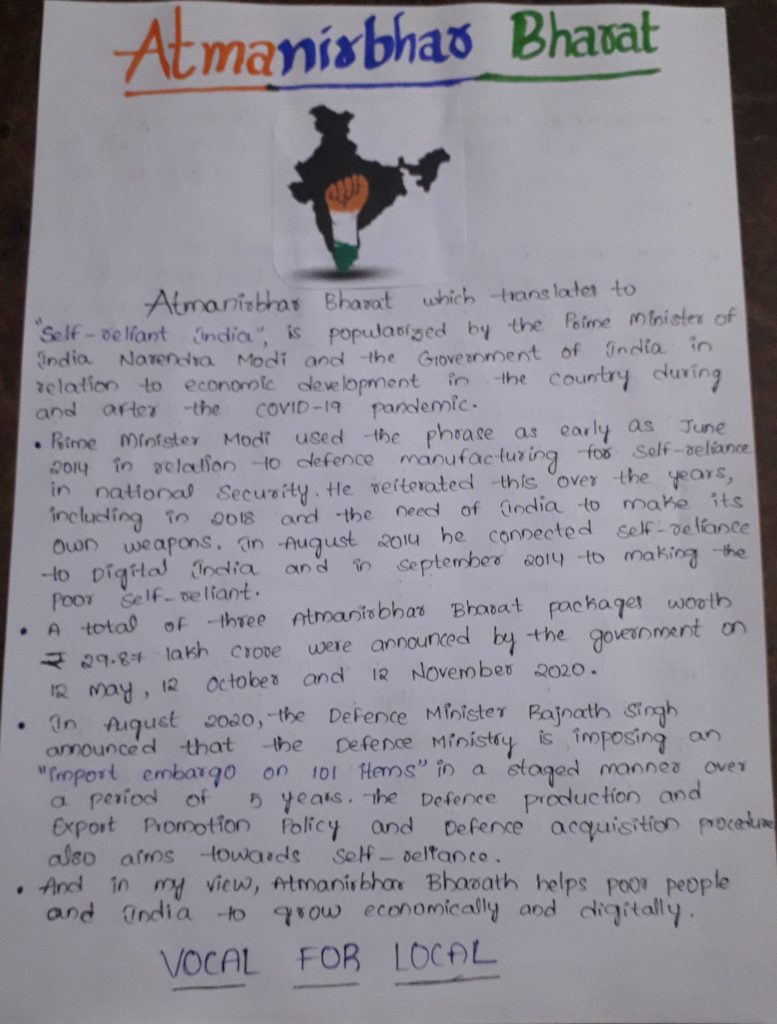 Atmanirbhar Bharat
Atmanirbhar Bharat which translates to
"Self-reliant India", is popularized by the Prime Minister of
India Narendra Modi and the Government of India in
relation to economic development in the country during
and after the COVID-19 pandemic.
• Prime Minister Modi used the phrase as early as June
2014 in relation to defence manufacturing for self-reliance
in national security. He reiterated this over the years,
including in 2018 and the need of India to make its
own weapons. In August 2014 he connected self-reliance
to Digital India and in september 2014 to making the
poor self-reliant.
• A total of three Atmanirbhar Bharat packages worth
₹ 29.87 lakh crore were announced by the government on
12 may, 12 October and 12 November 2020.
• In August 2020, the Defence Minister Rajnath Singh
announced that the Defence Ministry is imposing an
"import embargo on 101 items" in a staged manner over
a period of 5 years. The Defence production and
Export Promotion Policy and Defence acquisition procedure
also aims towards self-reliance.
• And in my view, Atmanirbhar Bharath helps poor people
and India to grow economically and digitally.
VOCAL FOR LOCAL